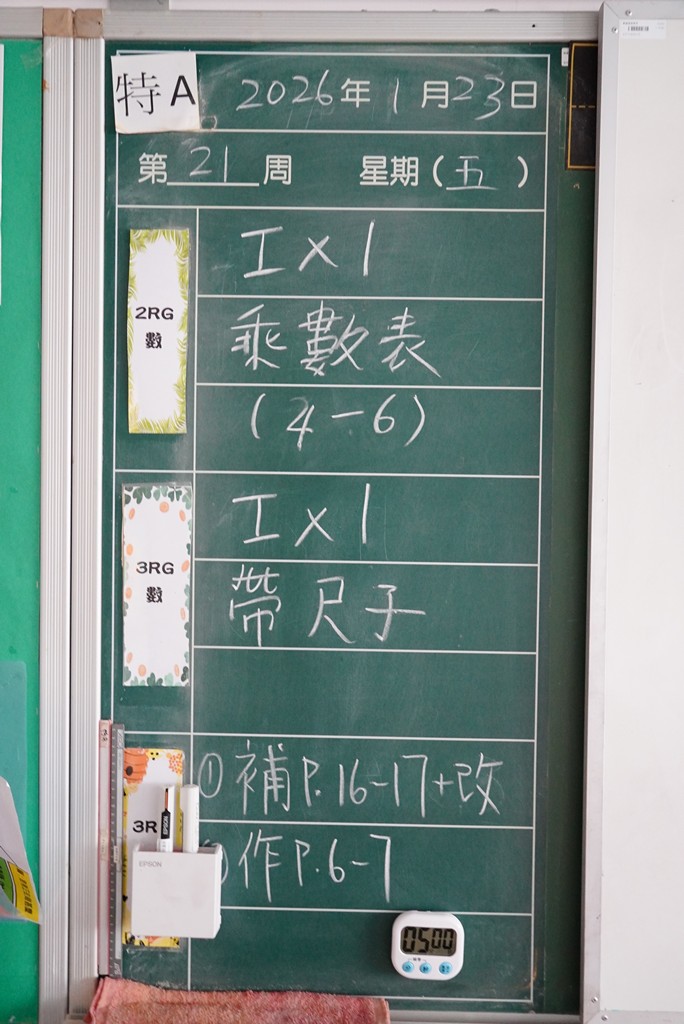 特A
2026年1月23日
第21周 星期(五)
2RG
數
工x1
乘數表
(4-6)
3RG
數
工x1
帶尺子
3R
①補P.16-17+改
作P.6-7
EPSON
EPSON
05:00